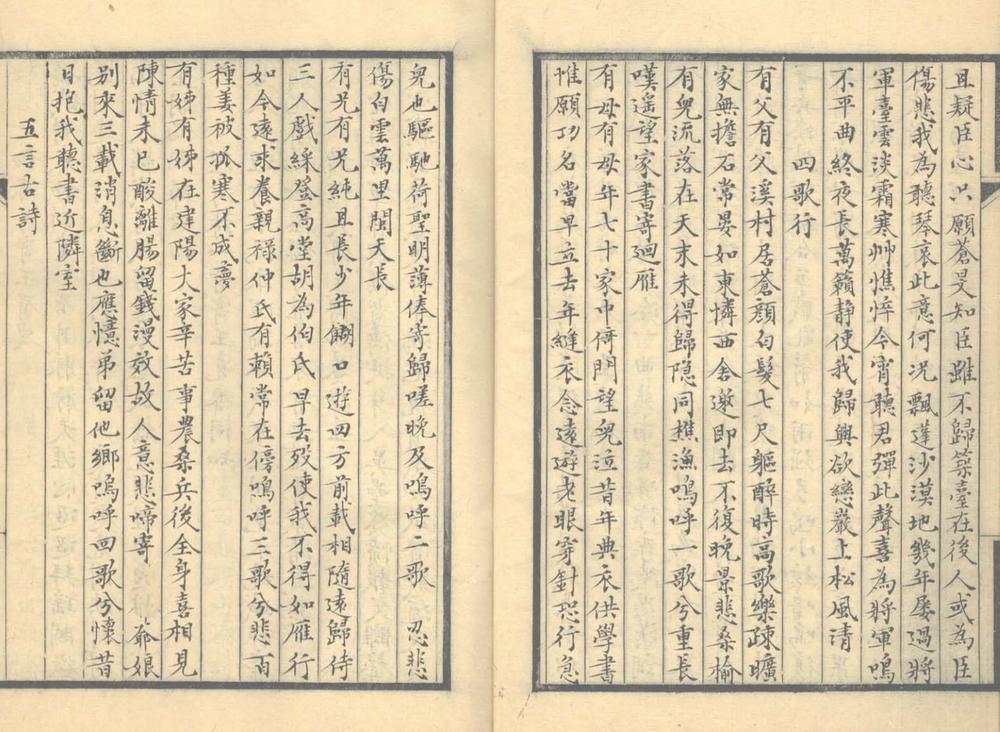 且疑臣心只願蒼旻知臣雖不歸築臺在後人或為臣
傷悲我為聽琴哀此意何況飄蓬沙漠地幾年屡過將
軍臺雲淡霜寒艸憔悴今宵聽君彈此聲喜為將軍鳴
不平曲終夜長萬籟静使我歸興欲戀巖上松風清
四歌行
有父有父溪村居蒼顔白髮七尺軀醉時高歌樂疎曠
家無擔石常晏如東憐西舍邀即去不復晚景悲桑榆
有兒流落在天末未得歸隐同樵漁嗚呼一歌兮重長
嘆遥望家書寄廻雁
有母有母年七十家中倚門望兒泣昔年典衣供學書
惟願功名當早立去年縫衣念遠遊老眼寄針恐行急
兒也驅馳荷聖明薄俸寄歸嗟晚及嗚呼二歌 忍悲
傷白雲萬里閩天長
有兄有兄純且長少年餬口遊四方前載相隨遠歸侍
三人戲綵登高堂胡為伯氏早去殁使我不得如雁行
如今遠求養親禄仲氏有賴常在傍嗚呼三歌兮悲百
種姜被孤寒不成夣
有姊有姊在建陽大家辛苦事農桑兵後全身喜相見
陳情未已酸離腸留錢漫效故人意悲啼寄 爺娘
别來三載消息斷也應憶弟留他鄉嗚呼四歌兮懷昔
日抱我聽書近隣室
五言古詩